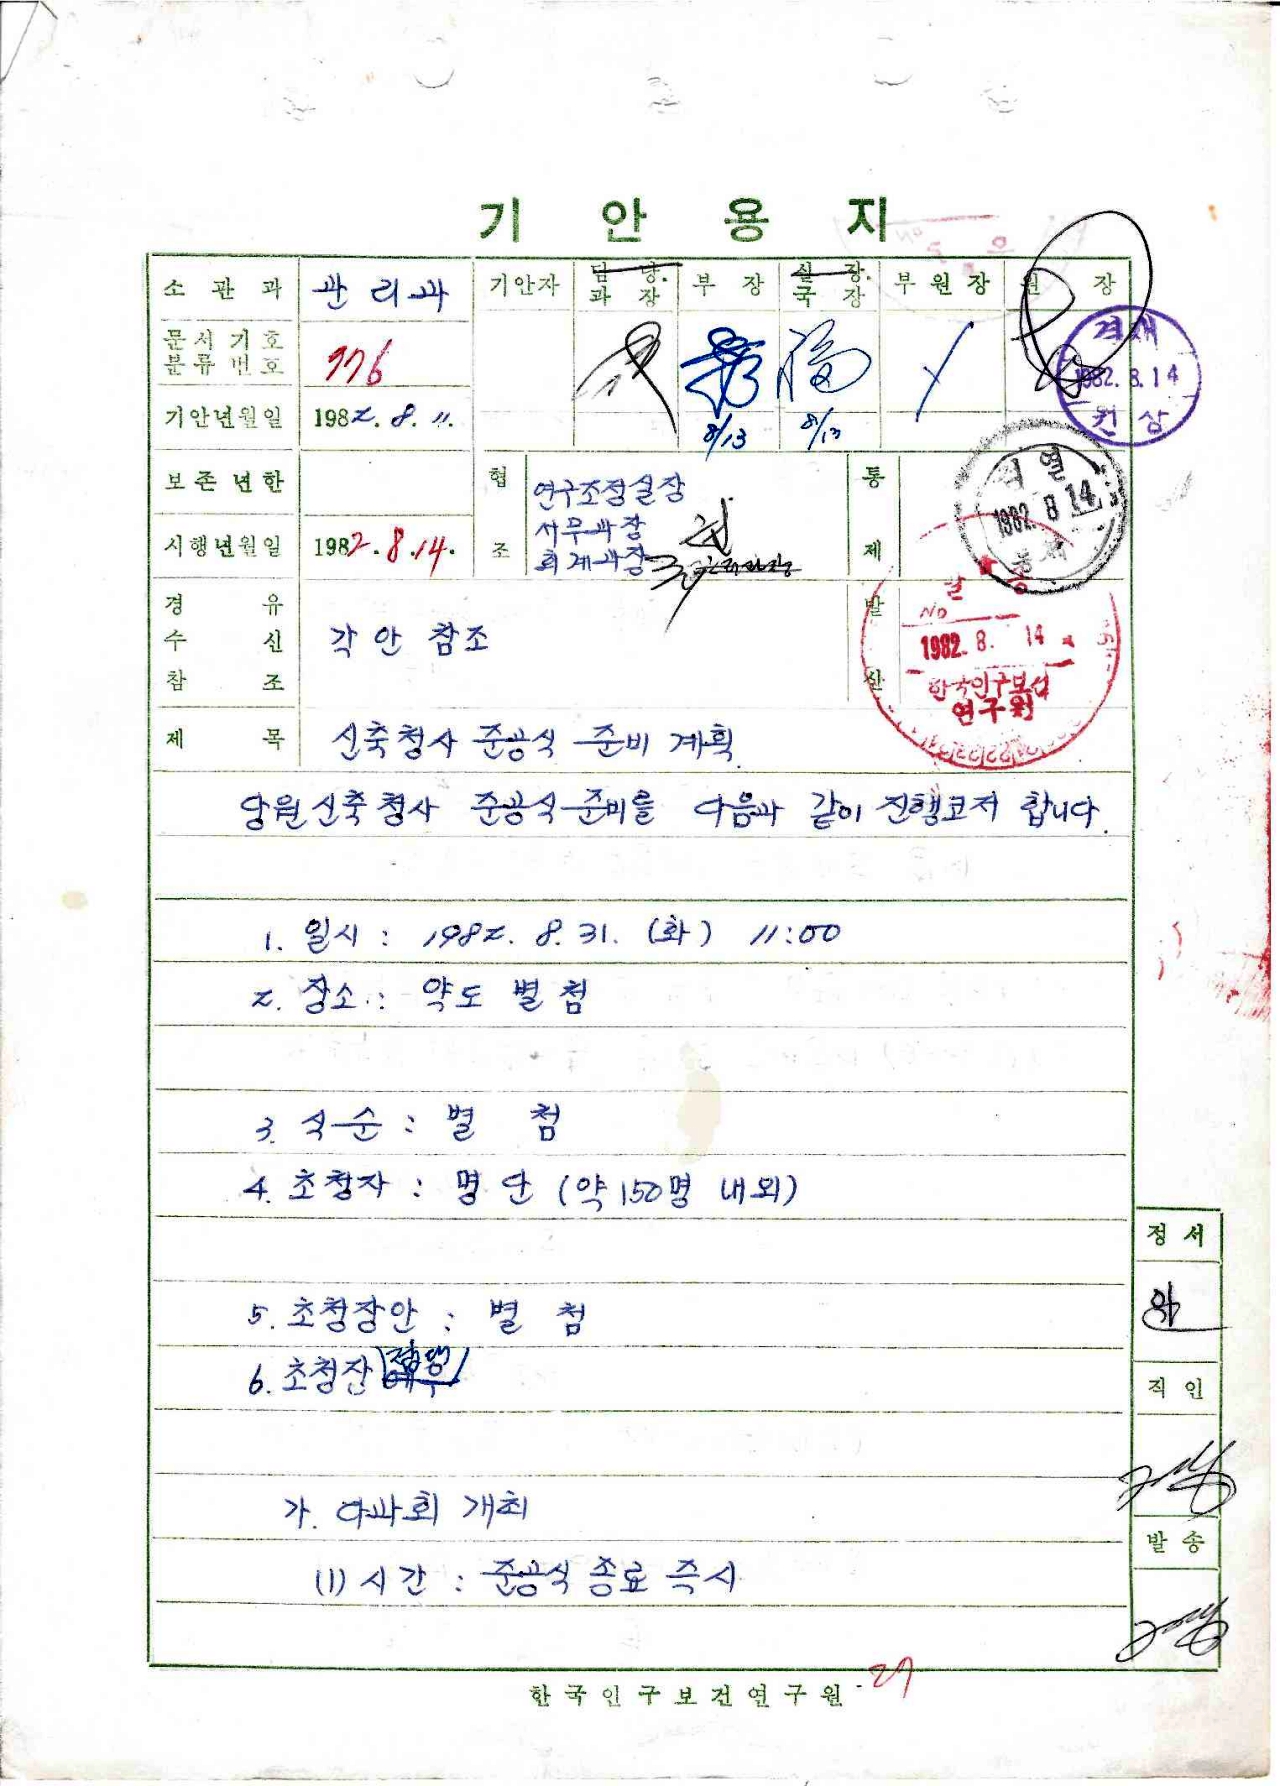 기 안 용 지
소 관 과 관리과 기안자 담 당. 과 장 부 장 실 장. 국 장 부 원 장 원 장
문서 기호
분류 번호 776
기안년월일 1982. 8. 11.
8/13 8/13
결재
1982. 8. 14
원장
보 존 년 한 협 조 연구조정실장 통 제
사무과장
회계과장
시행년월일 1982. 8. 14.
검열
1982. 8 14
통제
경 유
수 신 각 안 참조
참 조
발 신
발 송
No
1982. 8. 14
한국인구보건
연구원
제 목 신축청사 준공식 준비 계획.
당원 신축청사 준공식 준비를 다음과 같이 진행코저 합니다.
1. 일시 : 1982. 8. 31. (화) 11:00
2. 장소 : 약도 별첨
3. 식순 : 별 첨
4. 초청자 : 명단 (약 150명 내외)
정 서
5. 초청장안 : 별 첨
6. 초청장
직 인
가. 다과회 개최
발 송
(1) 시간 : 준공식 종료 즉시
한국인구보건연구원
27